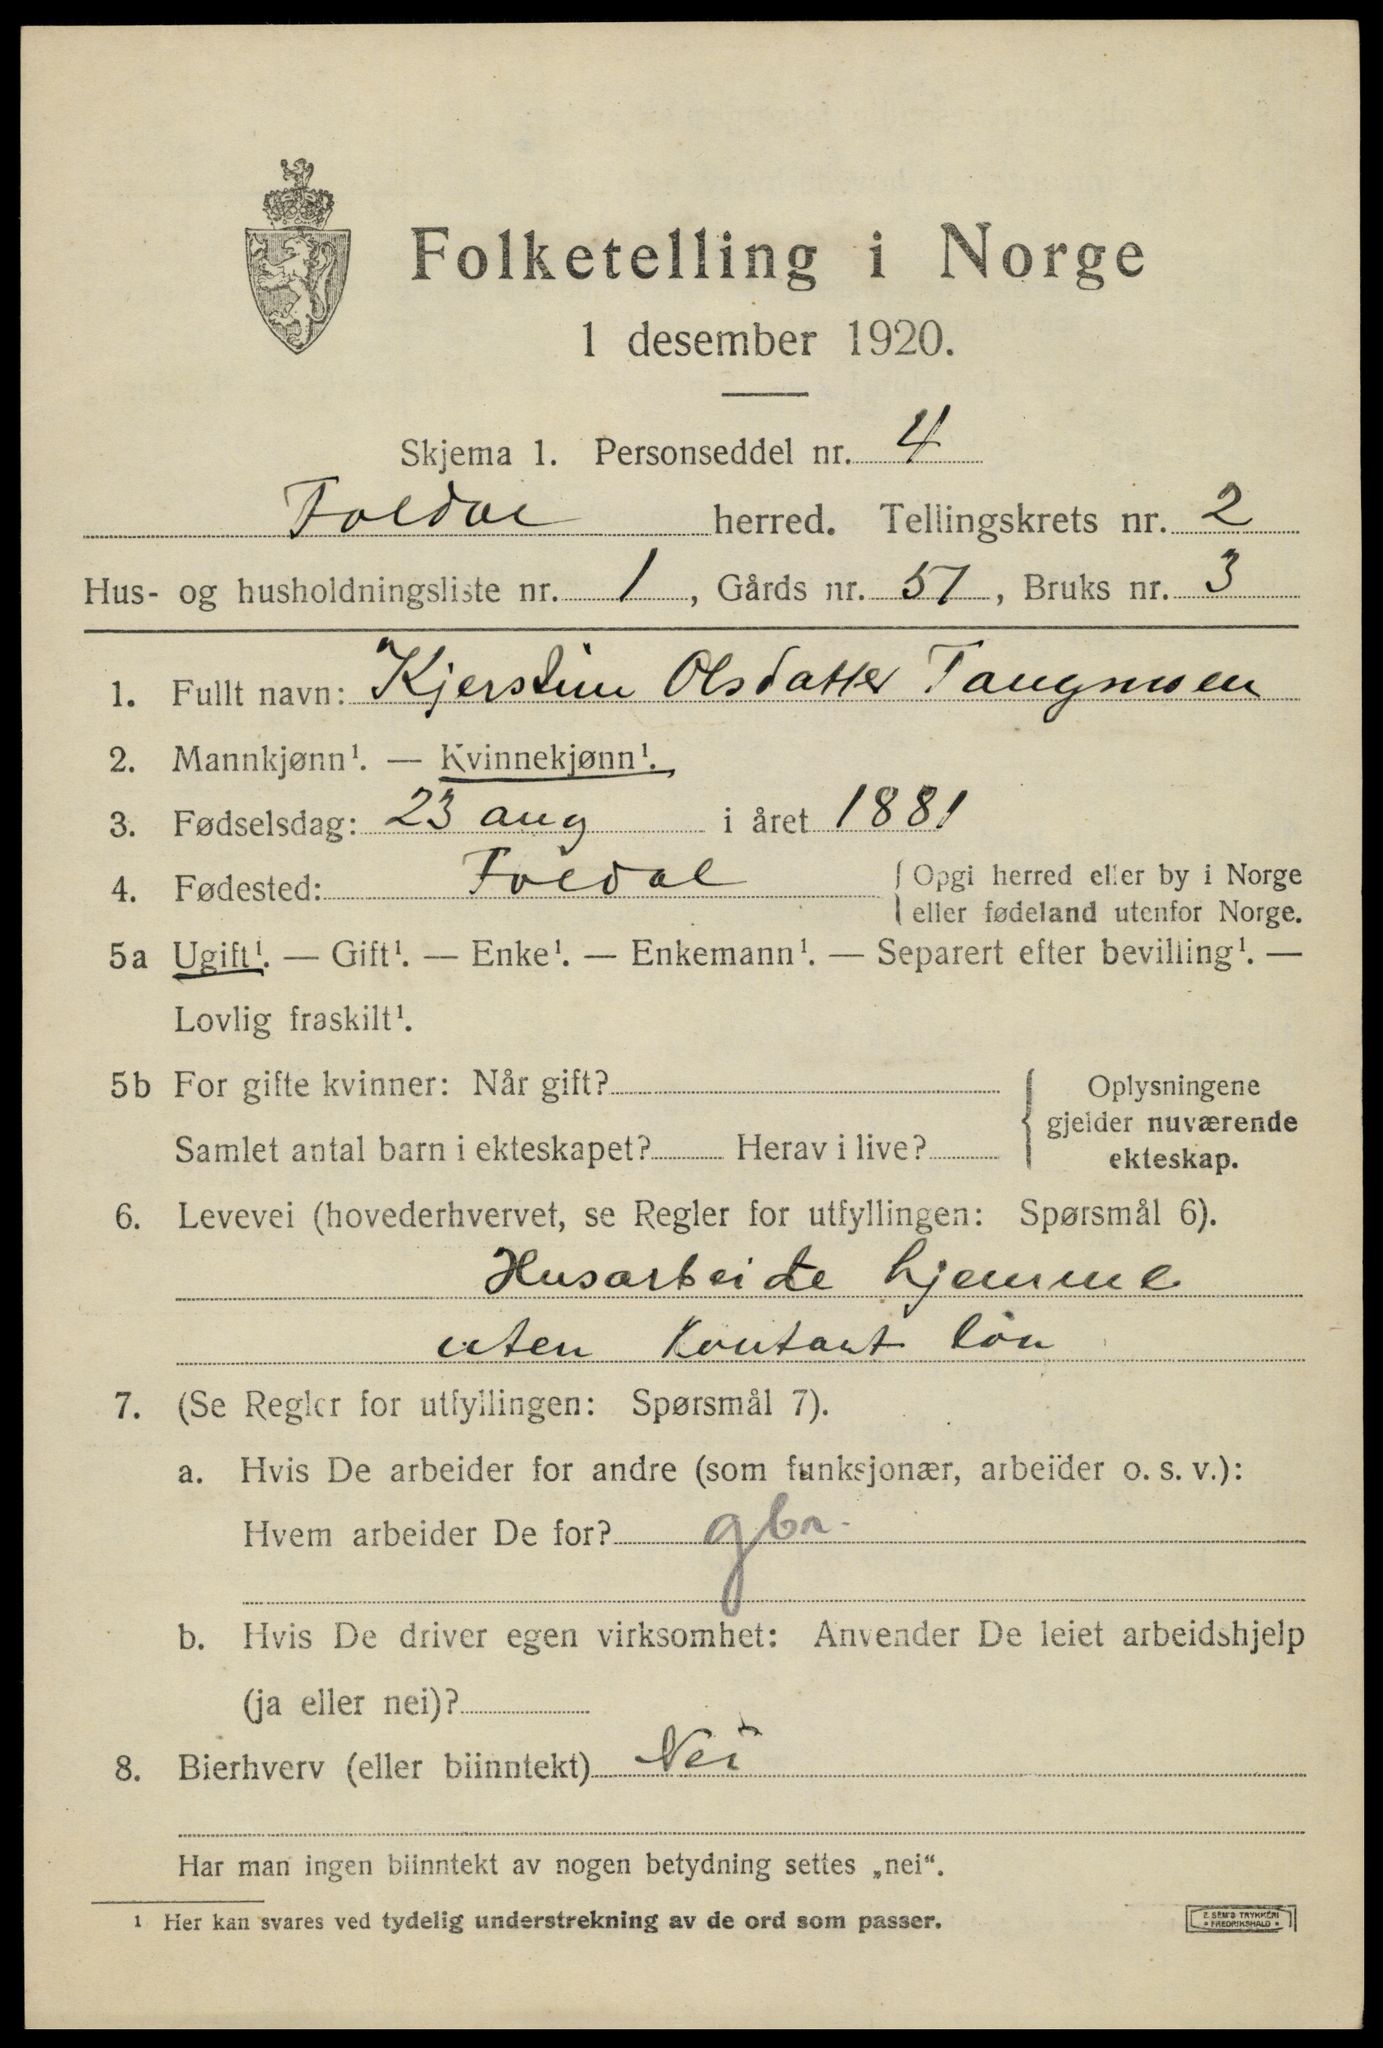 Folketelling i Norge
1 desember 1920.
Skjema 1. Personseddel nr. 4
Foldal herred. Tellingskrets nr. 2
Hus- og husholdningsliste nr. 1, Gårds nr. 51, Bruks nr. 3
1. Fullt navn: Kjerstine Olsdatter Tangmoen
2. Mannkjønn¹. — Kvinnekjønn¹.
3. Fødselsdag: 23 aug i året 1881
4. Fødested: Foldal { Opgi herred eller by i Norge
eller fødeland utenfor Norge.
5a Ugift¹. — Gift¹. — Enke¹. — Enkemann¹. — Separert efter bevilling¹. —
Lovlig fraskilt¹.
5b For gifte kvinner: Når gift? { Oplysningene
gjelder nuværende
Samlet antal barn i ekteskapet? Herav i live? ekteskap.
6. Levevei (hovederhvervet, se Regler for utfyllingen: Spørsmål 6).
Husarbeide hjemme
uten kontant løn
7. (Se Regler for utfyllingen: Spørsmål 7).
a. Hvis De arbeider for andre (som funksjonær, arbeider o. s. v.):
Hvem arbeider De for? gbr.
b. Hvis De driver egen virksomhet: Anvender De leiet arbeidshjelp
(ja eller nei)?
8. Bierhverv (eller biinntekt) Nei
Har man ingen biinntekt av nogen betydning settes „nei“.
¹ Her kan svares ved tydelig understrekning av de ord som passer.
E. SEM'S TRYKKERI
• FREDRIKSHALD •